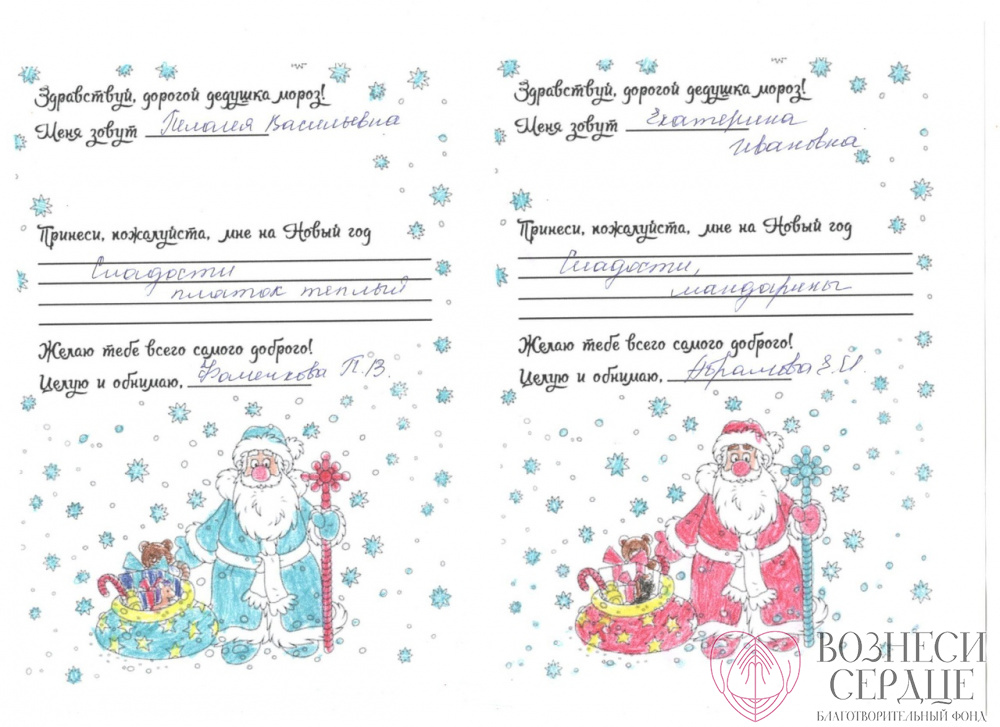 Здравствуй, дорогой дедушка мороз!
Меня зовут Пелагея Васильевна
Принеси, пожалуйста, мне на Новый год
Сладости
платок теплый
Желаю тебе всего самого доброго!
Целую и обнимаю, Фаменкова П.В.
Здравствуй, дорогой дедушка мороз!
Меня зовут Екатерина
Ивановна
Принеси, пожалуйста, мне на Новый год
Сладости,
мандарины
Желаю тебе всего самого доброго!
Целую и обнимаю, Абрамова Е.И.
ВОЗНЕСИ
СЕРДЦЕ
БЛАГОТВОРИТЕЛЬНЫЙ ФОНД